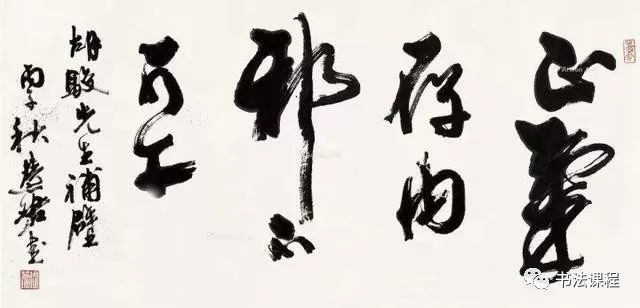 正氣
存内
邪不
可干
先生補壁
丙子秋
书法课程